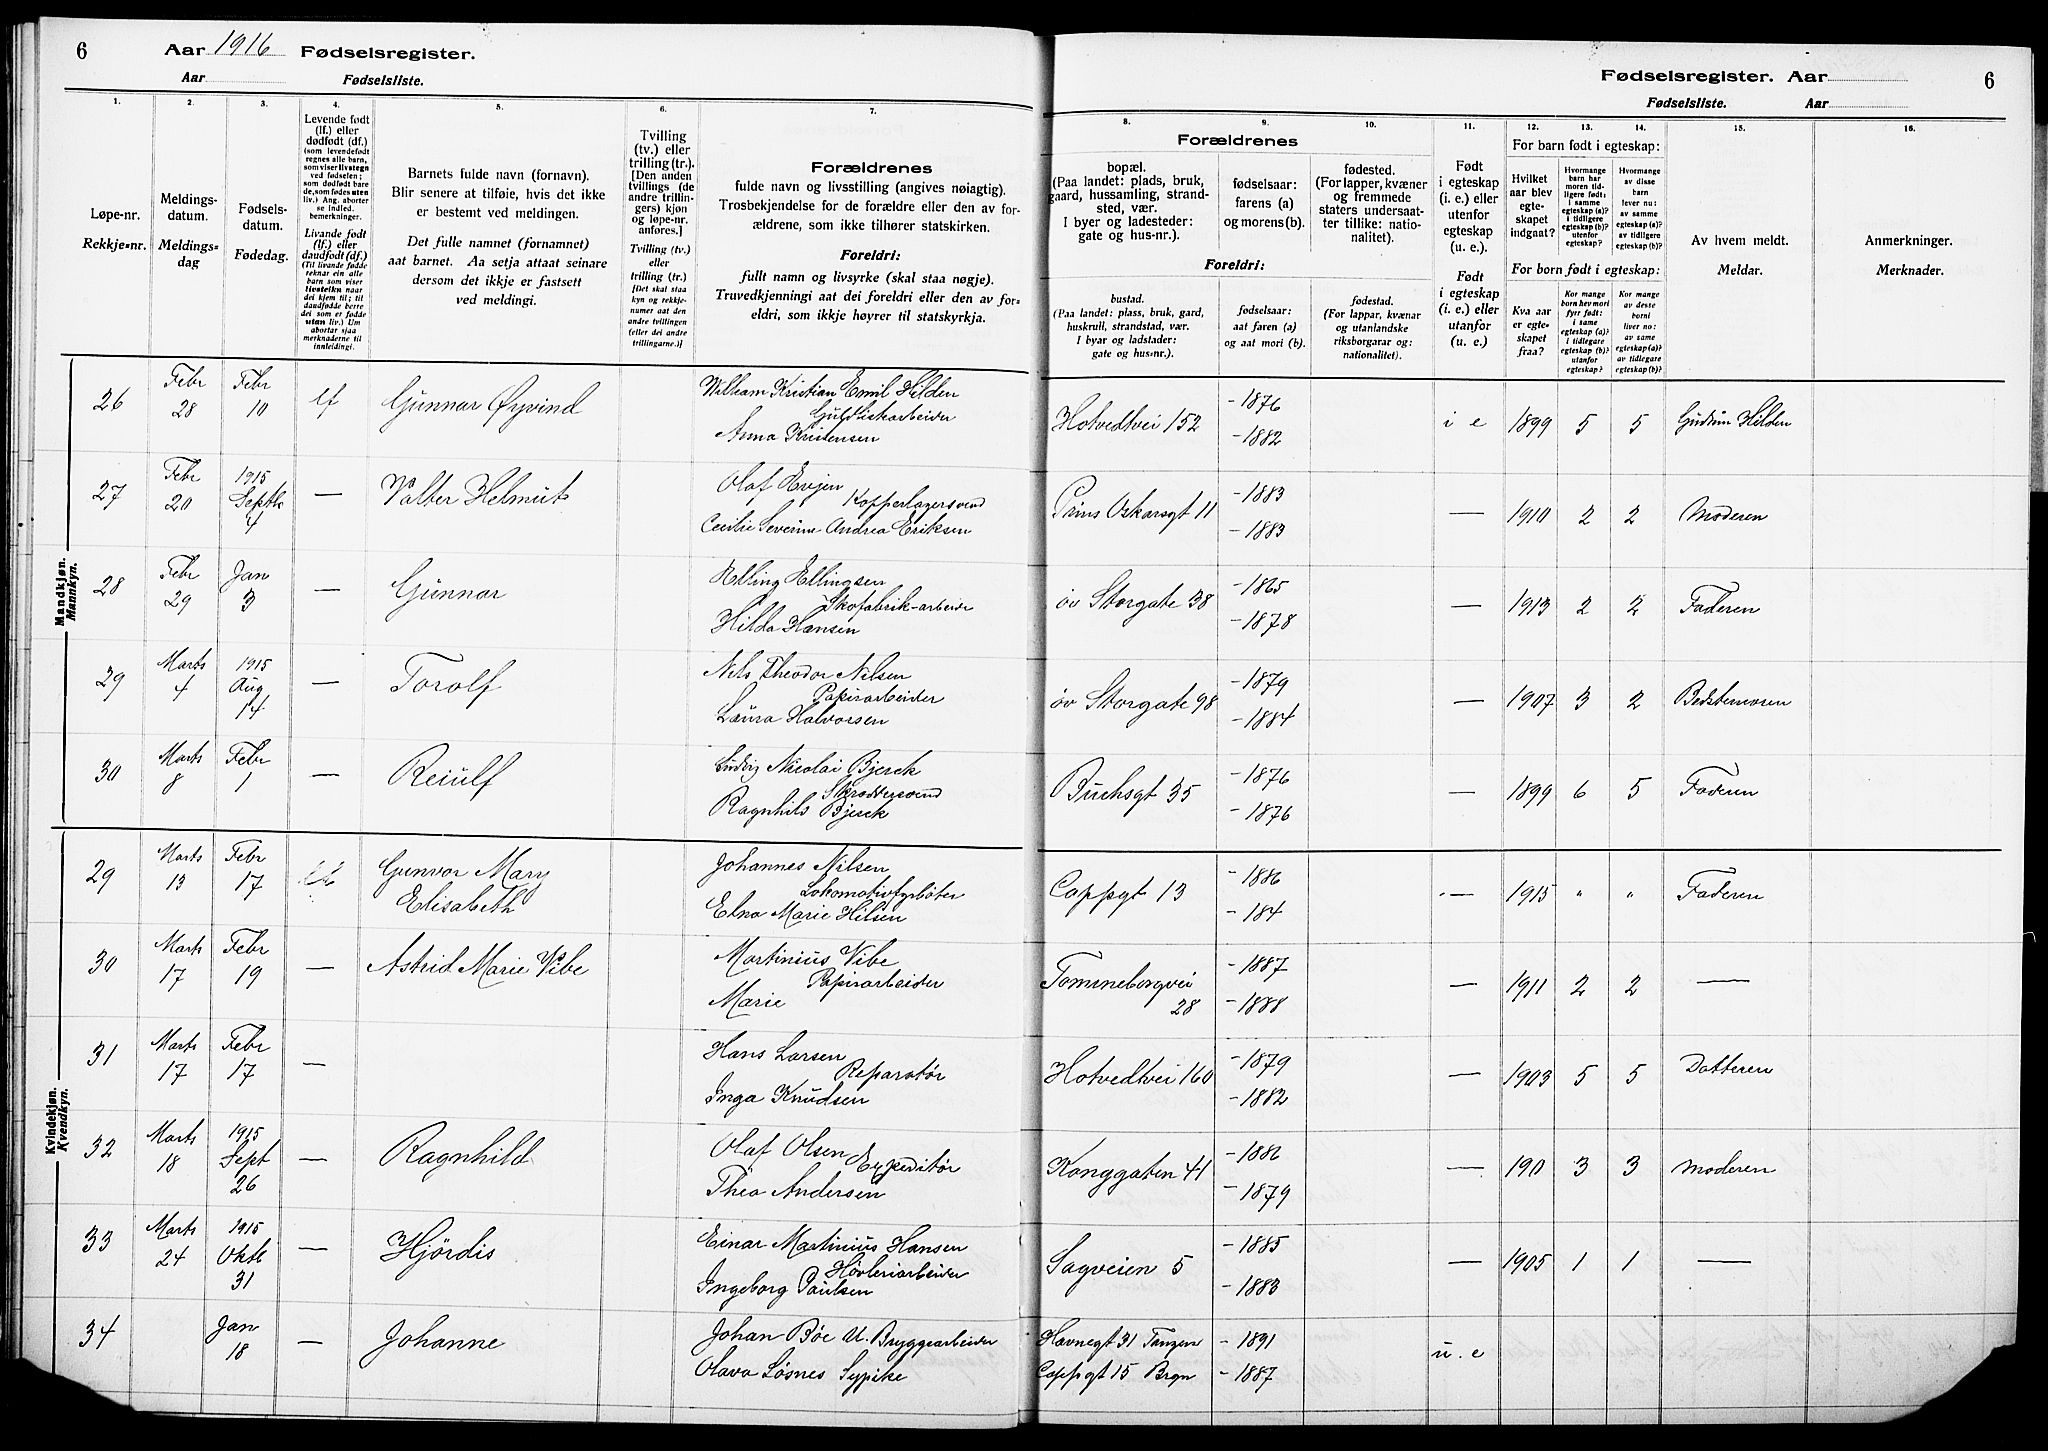 6 Aar 1916 Fødselsregister.
Aar Fødselsliste.
Fødselsregister. Aar 6
Fødselsliste. Aar
1. 2. 3. 4. 5. 6. 7. 8. 9. 10. 11. 12. 13. 14. 15. 16.
Løpe-nr.
Rekkje-nr.
Meldings-
datum.
Meldings-
dag
Fødsels-
datum.
Fødedag.
Levende født
(lf.) eller
dødfødt (df.)
(som levendefødt
regnes alle barn,
som viser livstegn
ved fødselen;
som dødfødt bare
de, som fødes uten
liv.) Ang. aborter
se indled.
bemerkninger.
Livande født
(lf.) eller
daudfødt (df.)
(Til livande fødde
reknar ein alle
born som viser
livsteikn naar
dei kjem til; til
daudfødde berre
dei som er fødde
utan liv.) Um
abortar sjaa
merknaderne til
innleidingi.
Barnets fulde navn (fornavn).
Blir senere at tilføie, hvis det ikke
er bestemt ved meldingen.
Det fulle namnet (fornamnet)
aat barnet. Aa setja attaat seinare
dersom det ikkje er fastsett
ved meldingi.
Tvilling
(tv.) eller
trilling (tr.).
[Den anden
tvillings (de
andre trillin-
gers) kjøn
og løpe-nr.
anføres.]
Tvilling (tv.)
eller
trilling (tr.)
[Det skal staa
kyn og rekkje-
numer aat den
andre tvillingen
(eller dei andre
trillingarne.)]
Forældrenes
fulde navn og livsstilling (angives nøiagtig).
Trosbekjendelse for de forældre eller den av for-
ældrene, som ikke tilhører statskirken.
Foreldri:
fullt namn og livsyrke (skal staa nøgje).
Truvedkjenningi aat dei foreldri eller den av for-
eldri, som ikkje høyrer til statskyrkja.
Forældrenes
bopæl.
(Paa landet: plads, bruk,
gaard, hussamling, strand-
sted, vær.
I byer og ladesteder:
gate og hus-nr.).
fødselsaar:
farens (a)
og morens (b).
fødested.
(For lapper, kvæner
og fremmede
staters undersaat-
ter tillike: natio-
nalitet).
Foreldri:
bustad.
(Paa landet: plass, bruk, gard,
huskrull, strandstad, vær.
I byar og ladstader:
gate og hus-nr.).
fødselsaar:
aat faren (a)
og aat mori (b).
fødestad.
(For lappar, kvænar
og utanlandske
riksborgarar og:
nationalitet).
Født
i egteskap
(i. e.) eller
utenfor
egteskap
(u. e.).
Født
i egteskap
(i. e.) eller
utanfor
(u. e.)
For barn født i egteskap:
Hvilket
aar blev
egte-
skapet
indgaat?
Hvormange
barn har
moren tid-
ligere født:
i samme
egteskap (a)?
i tidligere
egteskap (b)?
utenfor
egteskap?
Hvormange
av disse
barn
lever nu:
av samme
egteskap (a)?
av tidligere
egteskap (b)?
For born født i egteskap:
Kva aar
er egte-
skapet
fraa?
Kor mange
born hev mori
fyrr født:
i same
egteskap (a)?
i tidlegare
egteskap (b)?
utanfor
egteskap?
Kor mange
av desse
borni
liver no:
av same
egteskap (a)?
av tidlegare
egteskap (b)?
Av hvem meldt.
Meldar.
Anmerkninger.
Merknader.
Mandkjøn.
Mannkyn.
26 Febr 28 Febr 10 lf Gunnar Øyvind William Kristian Emil Hilden Guldlistarbeider Anna Kristensen Hotvedtvei 152 -1876 -1882 i e 1899 5 5 Gudrun Hilden
27 Febr 20 1915 Septb 4 — Valter Helmut Olaf Evjen Kopperlagersvend Cecilie Severine Andrea Eriksen Prins Oskarsgt 11 -1883 -1883 — 1910 2 2 Moderen
28 Febr 29 Jan 3 — Gunnar Elling Ellingsen Skofabrik-arbeider Hilda Hansen øv Storgate 38 -1865 -1878 — 1913 2 2 Faderen
29 Marts 4 1915 Aug 14 — Torolf Nils Theodor Nilsen Papirarbeider Laura Halvorsen øv Storgate 98 -1879 -1884 — 1907 3 2 Bedstemoren
30 Marts 8 Febr 1 — Reiulf Ludvig Nicolai Bjerck Skræddersvend Ragnhild Bjerck Buchsgt 35 -1876 -1876 — 1899 6 5 Faderen
Kvindekjøn.
Kvendkyn.
29 Marts 13 Febr 17 lf Gunvor Mary Elisabeth Johannes Nilsen Lokomotivfyrbøter Elna Marie Hilsen Cappgt 13 -1886 -184 — 1915 " " Faderen
30 Marts 17 Febr 19 — Astrid Marie Vibe Martinius Vibe Papirarbeider Marie Tomineborgvei 28 -1887 -1888 — 1911 2 2 —
31 Marts 17 Febr 17 — Hans Larsen Reparatør Inga Knudsen Hotvedtvei 160 -1879 -1882 — 1903 5 5 Datteren
32 Marts 18 1915 Sept 26 — Ragnhild Olaf Olsen Expeditør Thea Andersen Konggaten 41 -1886 -1879 — 190 3 3 Moderen
33 Marts 24 1915 Oktb 31 — Hjørdis Einar Martinius Hansen Høvleriarbeider Ingeborg Paulsen Sagveien 5 -1885 -1883 — 1905 1 1 —
34 Jan 18 — Johanne Johan Bøe U. Bryggearbeider Olava Løsnes Sypike Havnegt 31 Tangen Cappgt 15 Brgn -1891 -1887 u. e